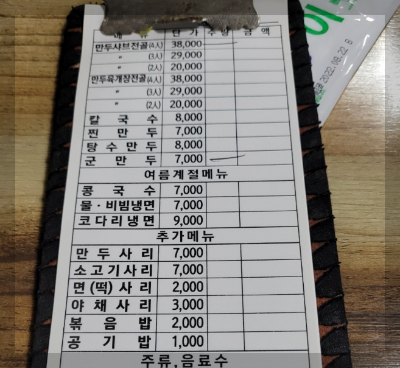 단 가 수량 금 액
만두샤브전골(4人) 38,000
〃 (3人) 29,000
〃 (2人) 20,000
만두육개장전골(4人) 38,000
〃 (3人) 29,000
〃 (2人) 20,000
칼 국 수 8,000
찐 만 두 7,000
탕 수 만 두 8,000
군 만 두 7,000
여름계절메뉴
콩 국 수 7,000
물·비빔냉면 7,000
코다리냉면 9,000
추가메뉴
만 두 사 리 7,000
소고기사리 7,000
면(떡)사리 2,000
야 채 사 리 3,000
볶 음 밥 2,000
공 기 밥 1,000
주류,음료수
2022.08.22